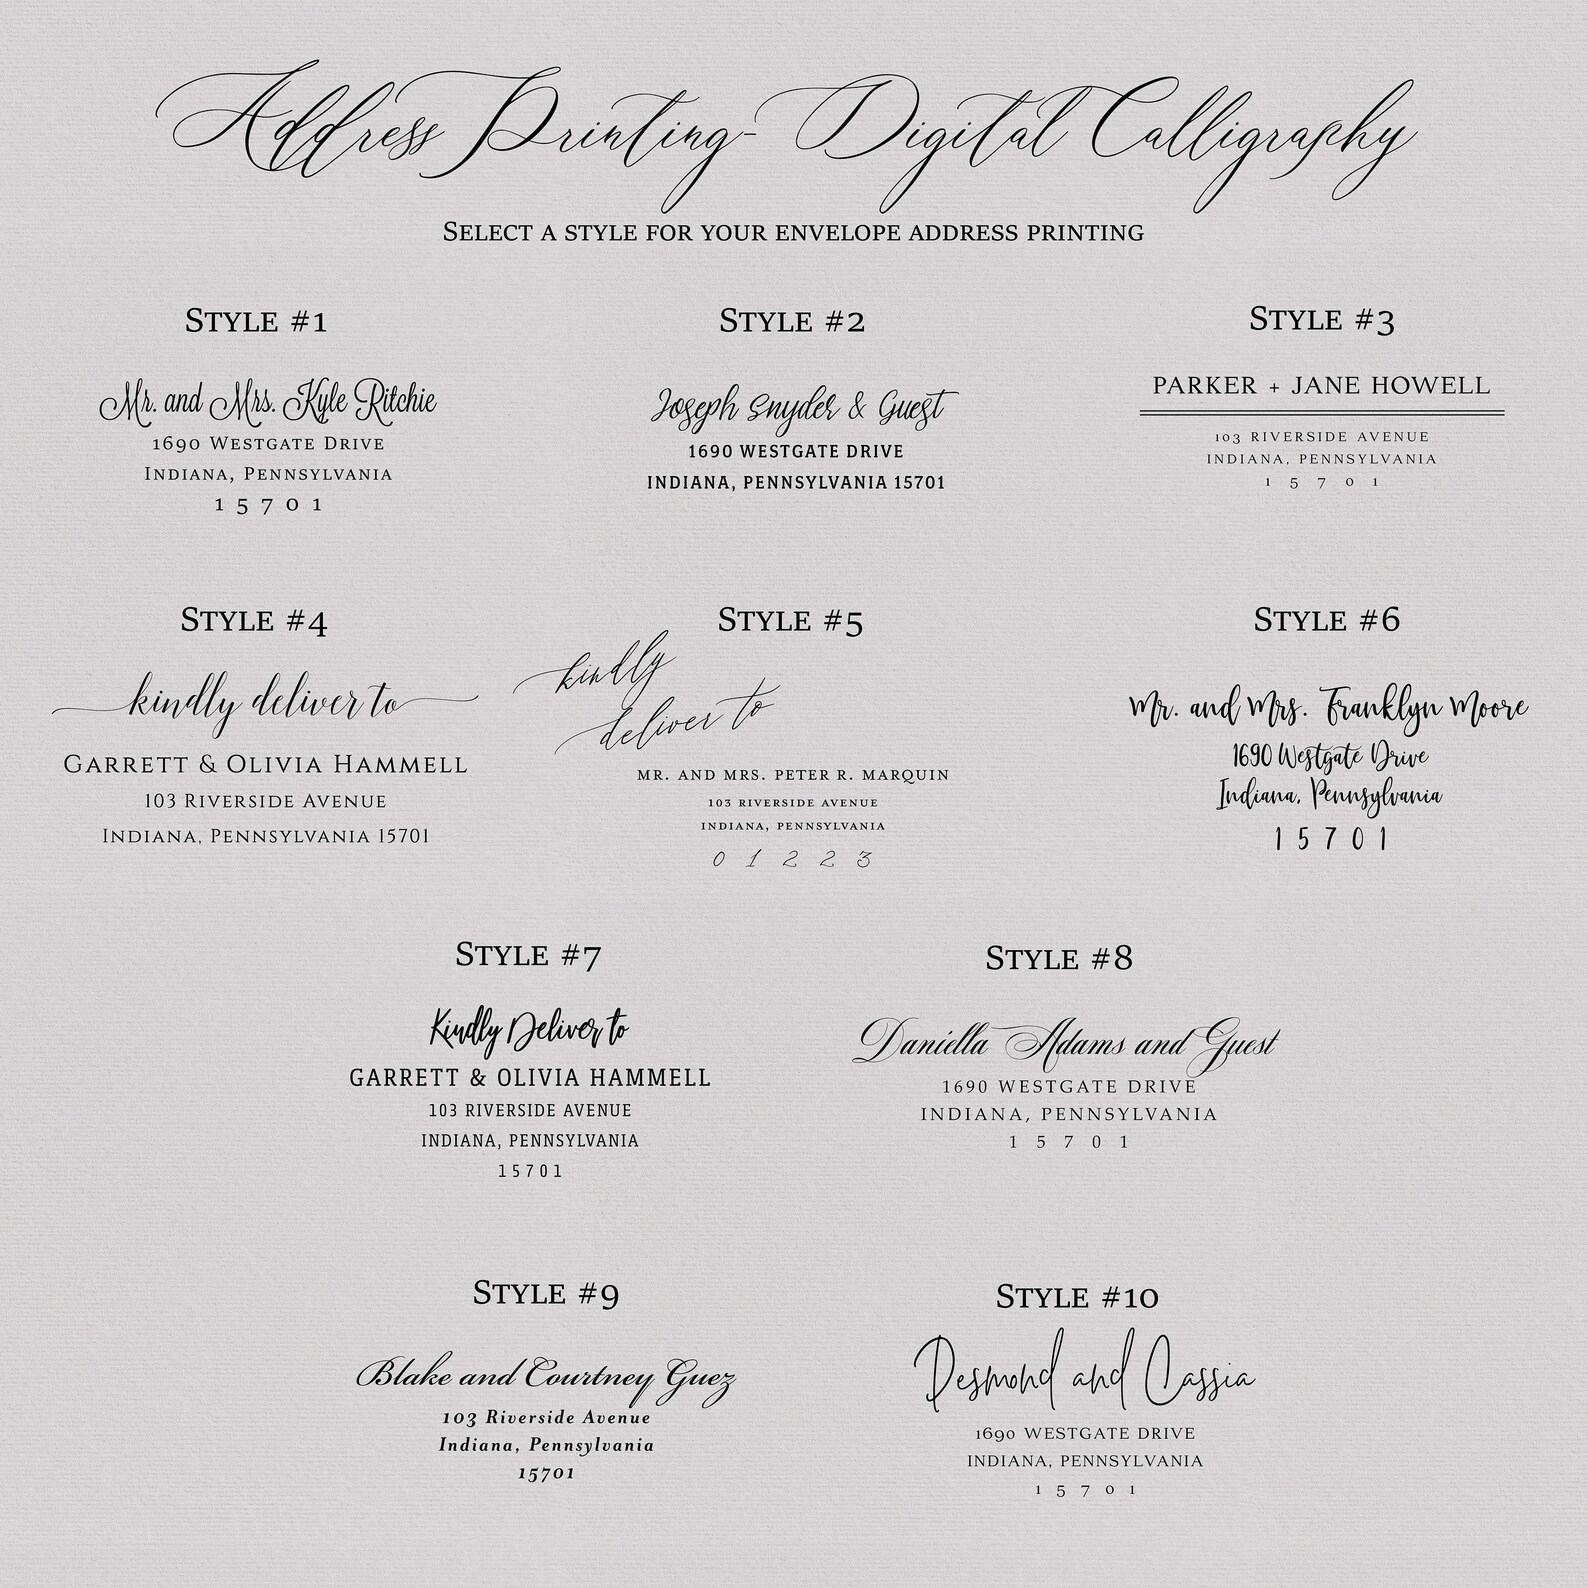 Address Printing- Digital Calligraphy
Select a style for your envelope address printing
Style #1
Mr. and Mrs. Kyle Ritchie
1690 Westgate Drive
Indiana, Pennsylvania
15701
Style #2
Joseph Snyder & Guest
1690 WESTGATE DRIVE
INDIANA, PENNSYLVANIA 15701
Style #3
PARKER + JANE HOWELL
103 RIVERSIDE AVENUE
INDIANA, PENNSYLVANIA
15701
Style #4
kindly deliver to
Garrett & Olivia Hammell
103 Riverside Avenue
Indiana, Pennsylvania 15701
Style #5
kindly
deliver to
MR. AND MRS. PETER R. MARQUIN
103 RIVERSIDE AVENUE
INDIANA, PENNSYLVANIA
01223
Style #6
Mr. and Mrs. Franklyn Moore
1690 Westgate Drive
Indiana, Pennsylvania
15701
Style #7
Kindly Deliver to
GARRETT & OLIVIA HAMMELL
103 RIVERSIDE AVENUE
INDIANA, PENNSYLVANIA
15701
Style #8
Daniella Adams and Guest
1690 WESTGATE DRIVE
INDIANA, PENNSYLVANIA
15701
Style #9
Blake and Courtney Guez
103 Riverside Avenue
Indiana, Pennsylvania
15701
Style #10
Desmond and Cassia
1690 WESTGATE DRIVE
INDIANA, PENNSYLVANIA
15701